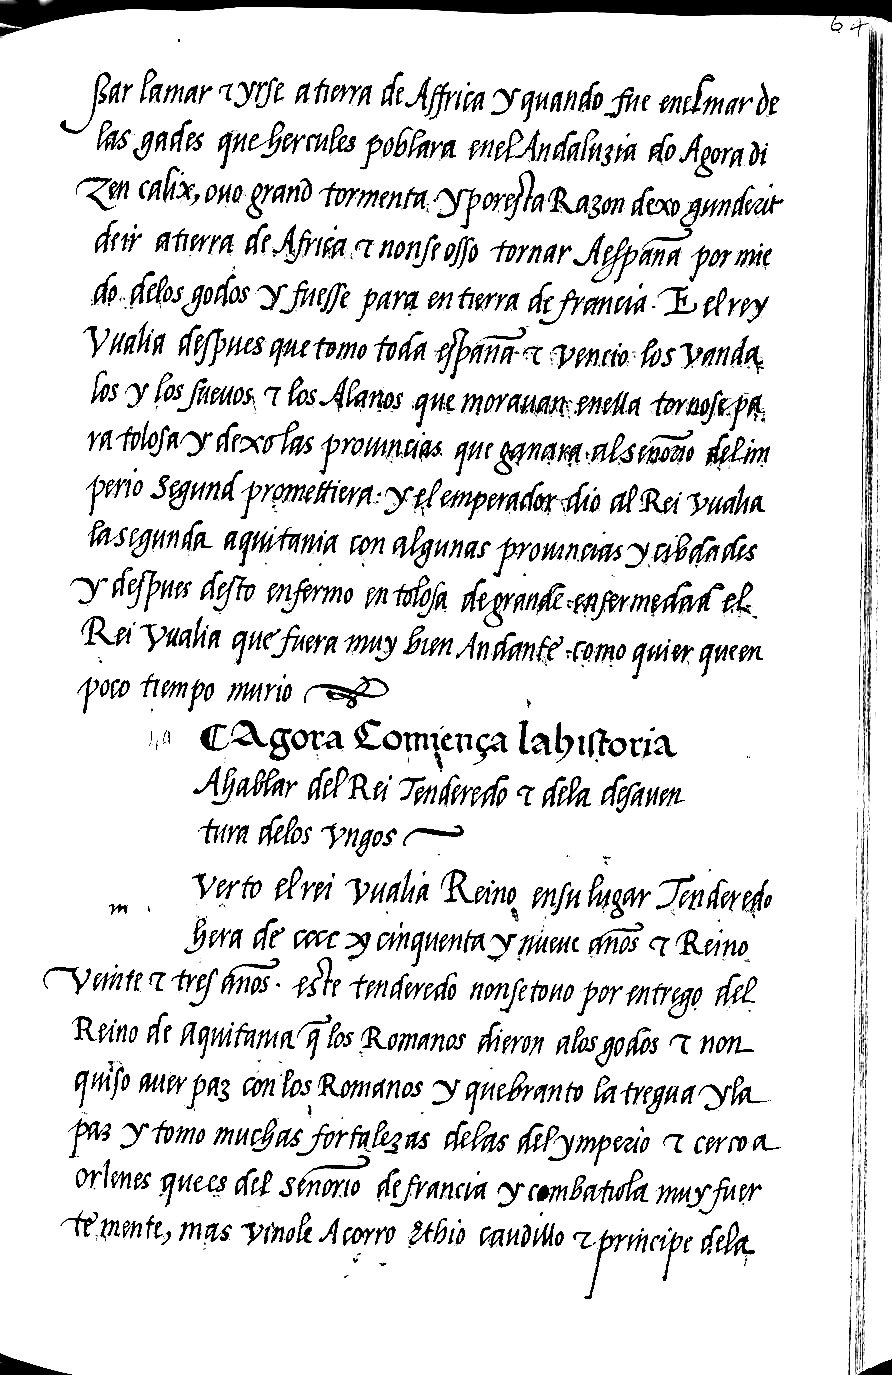 64
ssar la mar τ yrse a tierra de Affrica y quando fue enel mar de
las gades que hercules poblara enel Andaluzia do Agora di
zen calix, ouo grand tormenta y por esta Razon dexo gunderit
de ir a tierra de Africa τ non se osso tornar A españa por mie
do delos godos y fuesse para en tierra de francia. E el rey
Vualia despues que tomo toda españa τ vencio los vanda
los y los sueuos τ los Alanos que morauan enella tornose pa
ra tolosa y dexo las prouincias que ganara al señorio del im
perio segund promettiera: y el emperador dio al Rei vualia
la segunda aquitania con algunas prouincias y cibdades
y despues desto enfermo en tolosa de grande enfermedad el
Rei Vualia que fuera muy bien Andante como quier que en
poco tiempo murio
¶ Agora Comiença la historia
A hablar del Rei Tenderedo τ dela desauen
tura delos vngos
m
verto el rei vualia Reino en su lugar Tenderedo
hera de cccc y cinquenta y nueue años τ Reino
veinte τ tres años. este tenderedo non se touo por entrego del
Reino de aquitania q̃ los Romanos dieron alos godos τ non
quiso auer paz con los Romanos y quebranto la tregua y la
paz y tomo muchas fortalezas delas del ymperio τ cerco a
orlenes que es del señorio de francia y combatiola muy fuer
te mente, mas vinole A corro Ethio caudillo τ principe dela